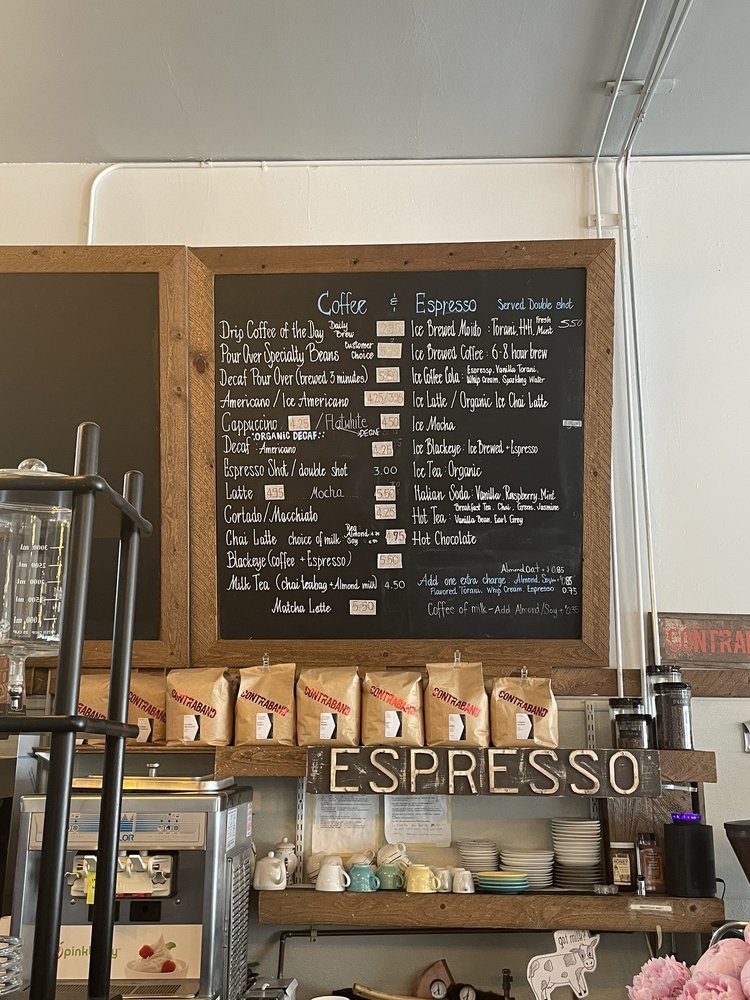 Coffee & Espresso Served Double shot
Drip Coffee of the Day Daily Brew
Pour Over Specialty Beans Customer Choice
Decaf Pour Over (brewed 3 minutes) 5.50
Americano / Ice Americano
Cappuccino 4.25 / Flatwhite 4.50
"ORGANIC DECAF" DECAF
Decaf: Americano 4.25
Espresso Shot / double shot 3.00
Latte 4.95 Mocha 5.50
Cortado/Macchiato 4.25
Chai Latte choice of milk: Almond Soy 4.95
Blackeye (Coffee + Espresso) 5.50
Milk Tea (chai teabag + Almond milk) 4.50
Matcha Latte 5.50
Ice Brewed Mojito: Torani, H+H, Fresh Mint 5.50
Ice Brewed Coffee: 6-8 hour brew
Ice Coffee Cola: Espresso, Vanilla Torani, Whip Cream, Sparkling Water
Ice Latte / Organic Ice Chai Latte
Ice Mocha
Ice Blackeye: Ice Brewed + Espresso
Ice Tea: Organic
Italian Soda: Vanilla Raspberry, Mint
Hot Tea: Breakfast Tea, Chai, Green, Jasmine
Vanilla Bean, Earl Grey
Hot Chocolate
Add one extra charge: Almond, Soy
Flavored Torani, Whip Cream, Espresso 0.75
Coffee of milk - Add Almond/Soy
CONTRABAND
CONTRABAND
CONTRABAND
CONTRABAND
CONTRABAND
CONTRABAND
CONTRABAND
ESPRESSO
3000 ml
pinkb
got milk?